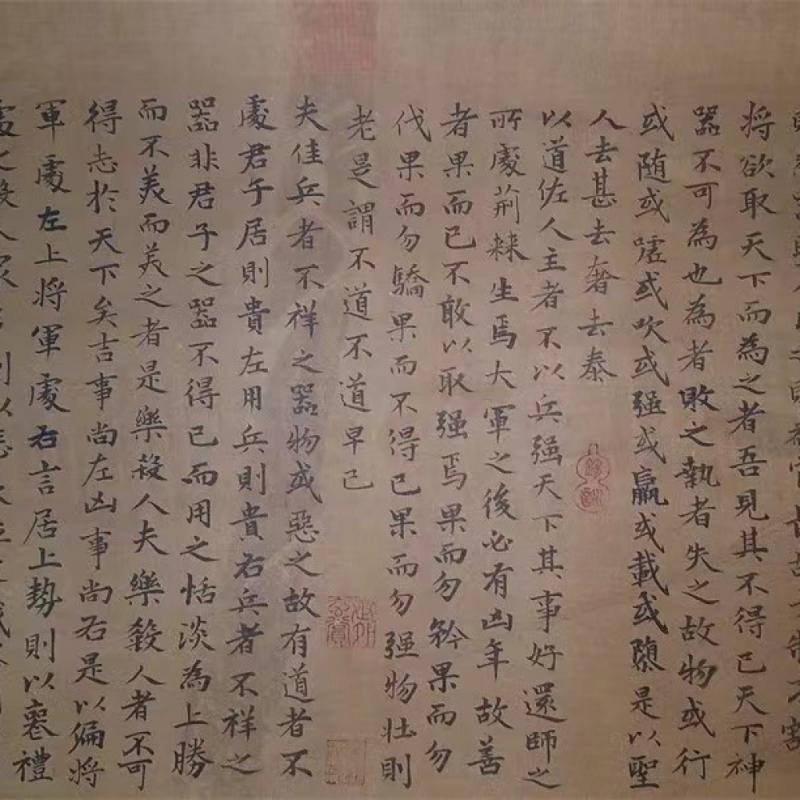 将欲取天下而為之者吾見其不得已天下神
器不可為也為者敗之執者失之故物或行
或随或嘘或吹或强或羸或載或隳是以聖
人去甚去奢去泰
以道佐人主者不以兵强天下其事好還師之
所處荆棘生焉大軍之後必有凶年故善
者果而已不敢以取强焉果而勿矜果而勿
伐果而勿驕果而不得已果而勿强物壯則
老是謂不道不道早已
夫佳兵者不祥之器物或惡之故有道者不
處君子居則貴左用兵則貴右兵者不祥之
器非君子之器不得已而用之恬淡為上勝
而不美而美之者是樂殺人夫樂殺人者不可
得志於天下矣吉事尚左凶事尚右是以偏将
軍處左上将軍處右言居上勢則以喪禮